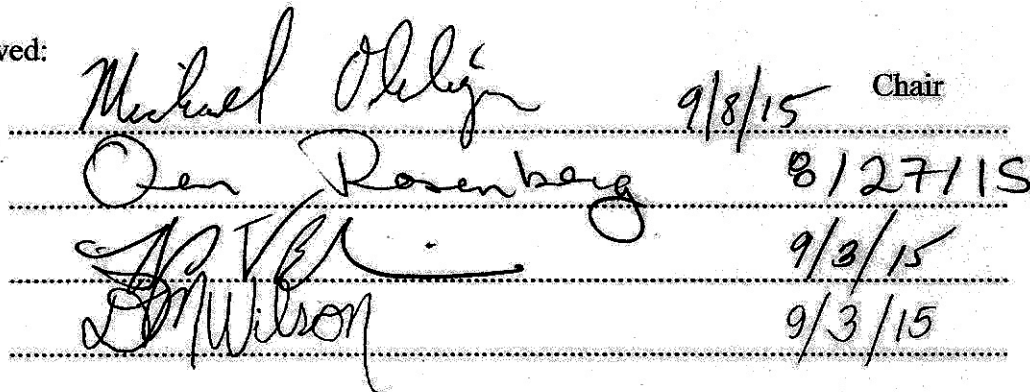 ved:
Michael 9/8/15 Chair
Oen Rosenberg 8/27/15
9/3/15
DMWilson 9/3/15